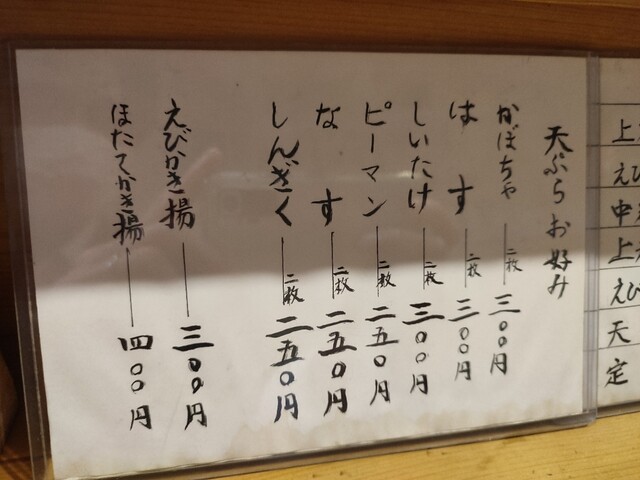 上
えび
中
上
えび
天
定
天ぷらお好み
かぼちゃ 二枚 三〇〇円
はす 二枚 三〇〇円
しいたけ 二枚 三〇〇円
ピーマン 二枚 二五〇円
なす 二枚 二五〇円
しんぎく 二枚 二五〇円
えびかき揚 三〇〇円
ほたてかき揚 四〇〇円